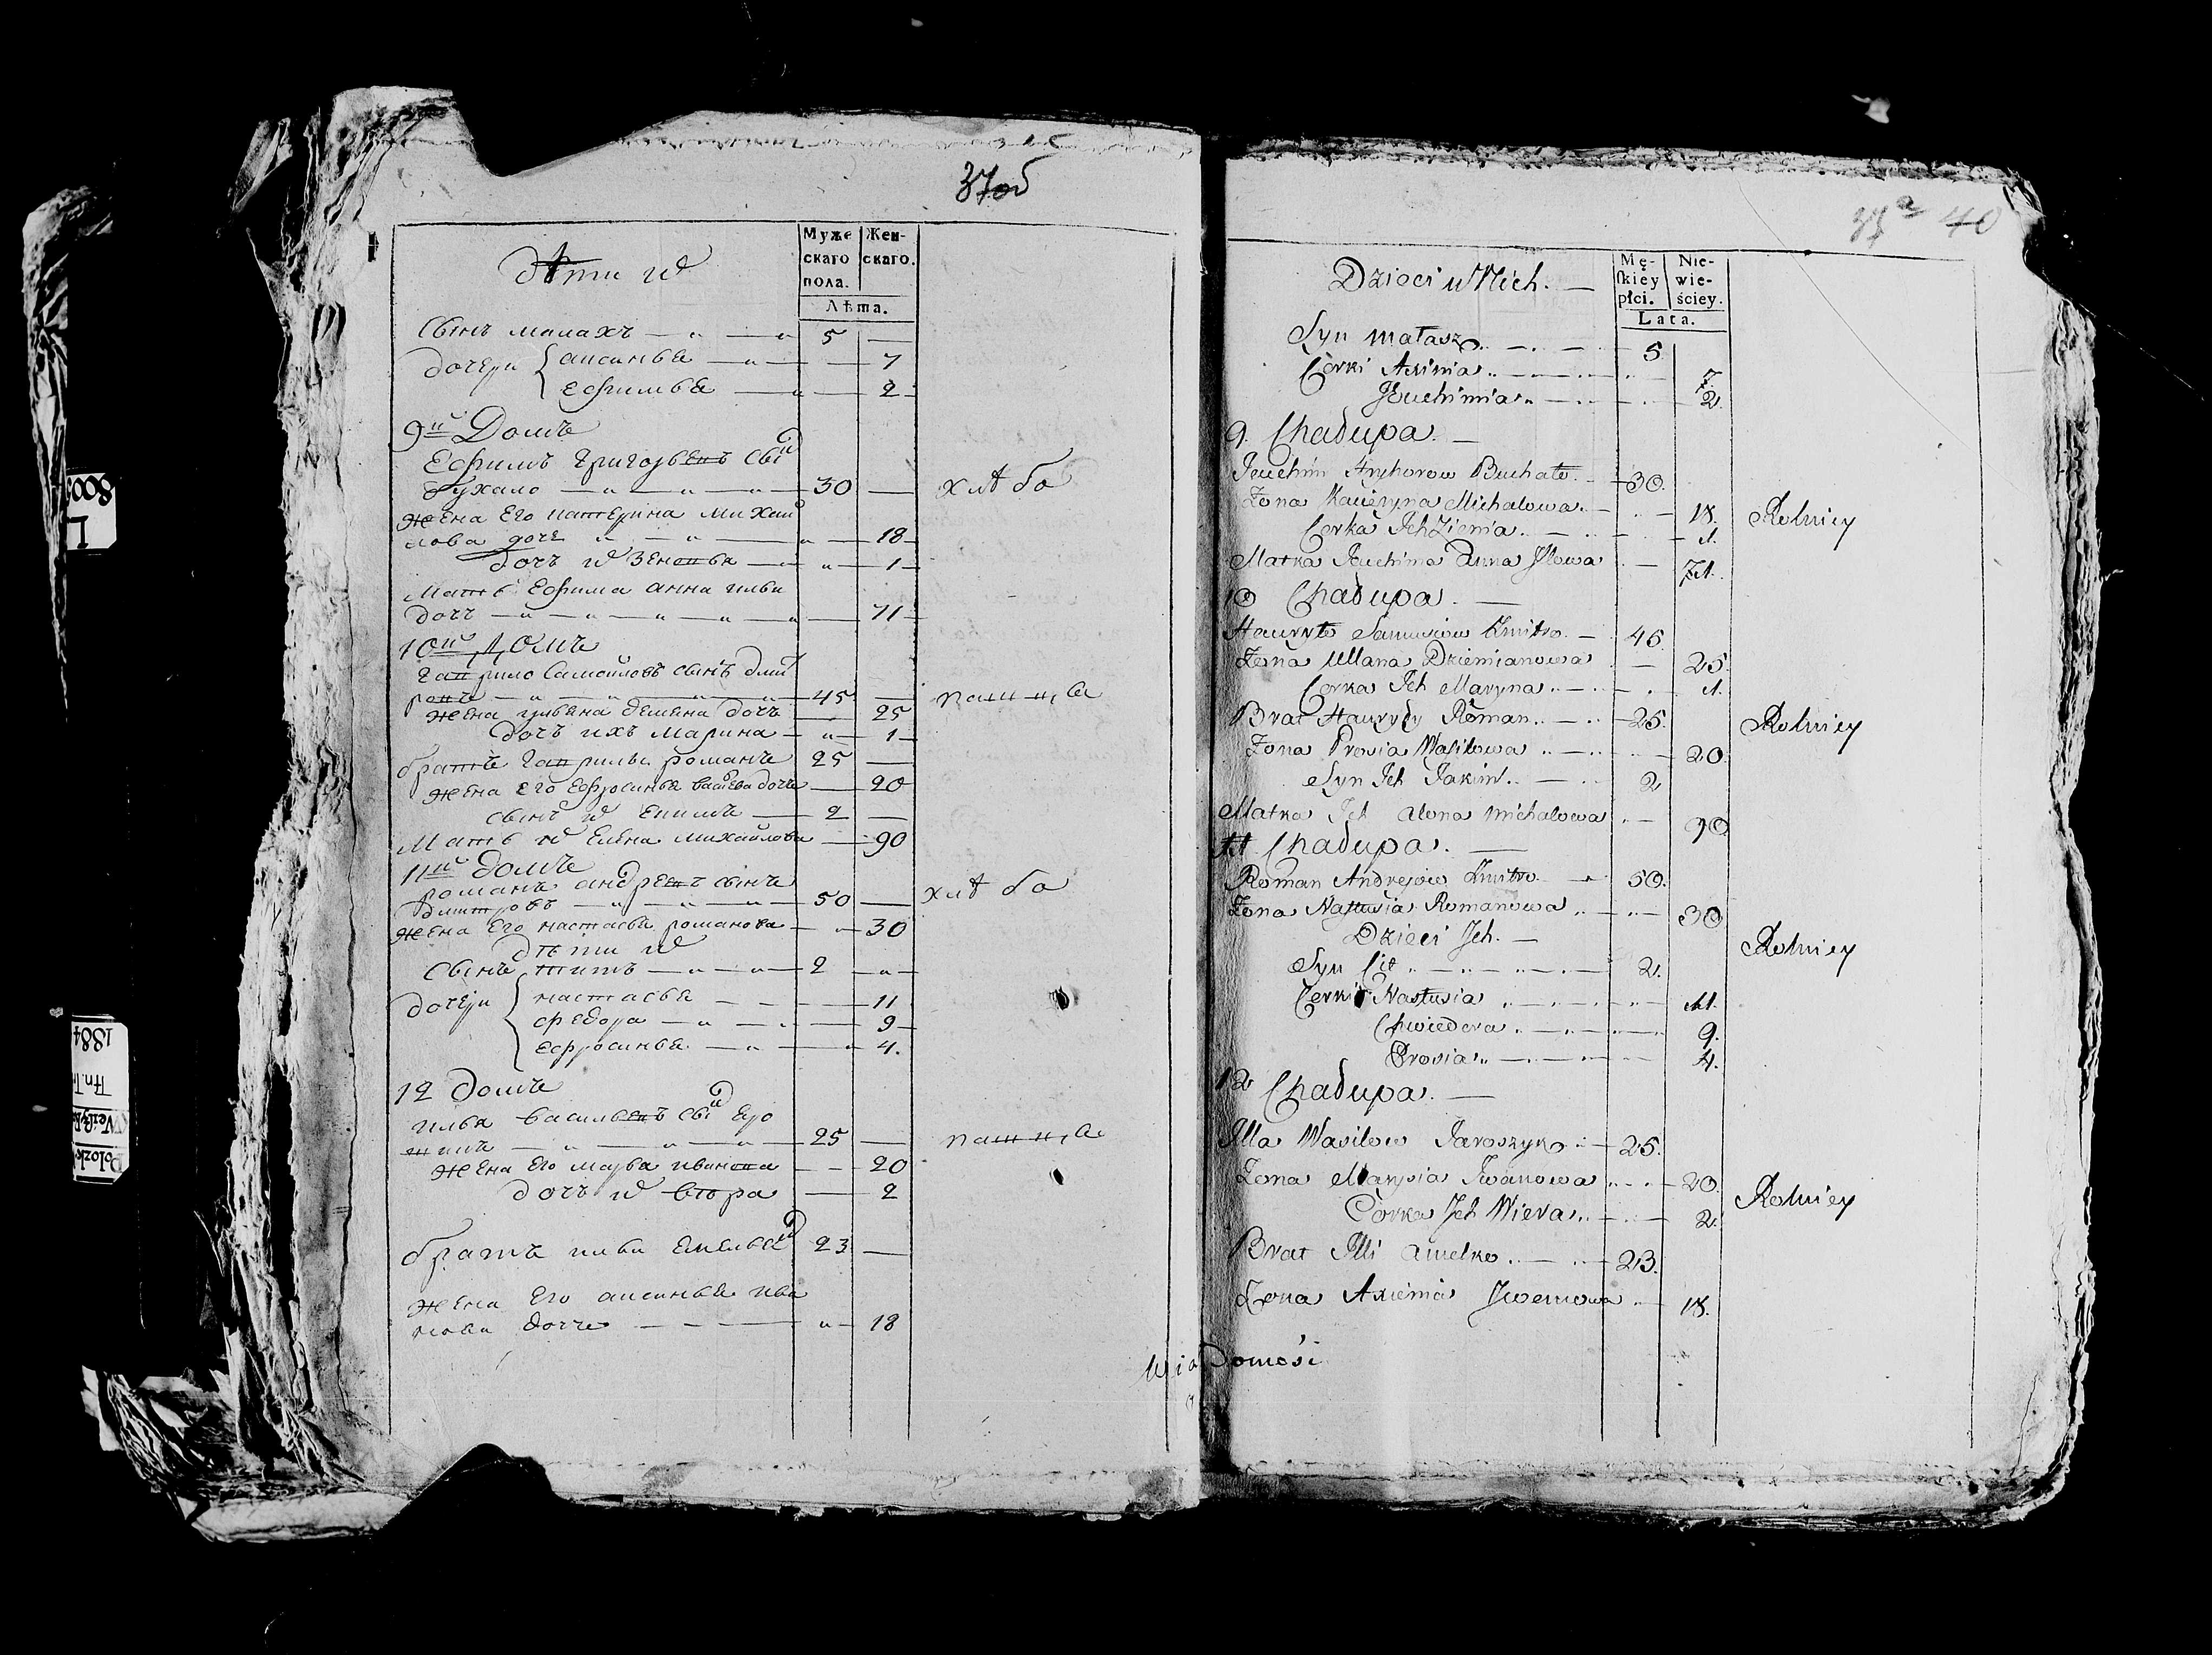 37об
Муже
скаго
пола.
Жен-
скаго.
Лѣта.
дѣти их
Сынъ малахъ — „ — „ 5 —
дочери { аксинья — „ — — 7
ефимья — „ — 2
9й Домъ
Ефимъ григорьевъ сын
бухало — „ — „ — „ — 30 — хлѣбо
жена Его катерина михай
лова дочь „ — „ — „ — 18
дочь их Зеновья — „ — 1
Мать Ефима анна ильи
дочь — „ — „ — „ — „ — „ — 71
10й Домъ
гаврило Самойловъ сынъ дми
ровъ — „ — „ — „ — „ — 45 — пашица
жена ульяна демена дочь — 25
дочь ихъ марина — „ — 1
братъ гаврилы романъ 25 —
жена Его Ефросинья васильева дочь — 20
сынъ их Екимъ — 2 —
Мать их Елена михайлова — 90
11й домъ
романъ андреевъ сынъ
дмитровъ — „ — „ — „ — 50 — хлѣбо
жена Его настасья романова — „ — 30
дѣти их
Сынъ титъ — „ — „ — 2 — „ —
дочери { настасья — — — 11
федора — „ — „ — 9
ефросинья — „ — „ 4.
12 домъ
илья васильевъ сын Еро
шикъ — „ — „ — „ — 25 — пашица
жена Его марья иванова — — 20
дочь их вѣра — 2
братъ ильи Емельян 23 —
жена Его аксинья ива
нова дочь — — — „ — 18
40
Mę-
skiey
płci.
Nie-
wie-
ściey.
Lata.
Dzieci u Nich. —
Syn Małasz „ — „ — 5.
Corki Axinia „ — — „ — 7.
Jeuchimia „ — „ — 2.
9. Chałupa. —
Jeuchim Hryhorow Buchało. — 30.
Zona Kacieryna Michałowa „ — „ — 18. Rolniey
Corka Ich Zienia „ — „ — 1.
Matka Jeuchima Anna Illowa — 71.
10 Chałupa. —
Hauryło Samusiow Zmitro. — 46.
Zona Ullana Dziemianowa — 25.
Corka Ich Maryna „ — „ 1.
Brat Hauryły Roman „ — „ 25. Rolniey
Zona Prosia Wasilowa „ — „ — 20.
Syn Ich Jakim „ — „ 2
Matka Ich Alona Michałowa „ — 90
11 Chałupa. —
Roman Andrejow Zmitro. — 50.
Zona Nastusia Romanowa „ — „ — 30
Dzieci Ich. — Rolniey
Syn Cit „ — „ — „ — 2.
Corki Nastusia „ — „ — „ — 11.
Chwiedora „ — „ — „ — 9.
Prosia „ — „ — 4.
12 Chałupa. —
Illa Wasilow Jaroszyk „ — 25.
Zona Marysia Iwanowa „ — „ — 20. Rolniey
Corka Ich Wiera „ — „ — 2.
Brat Illi Amelko „ — „ — 23.
Zona Axienia Iwanowa „ — 18.
Wiadomośi